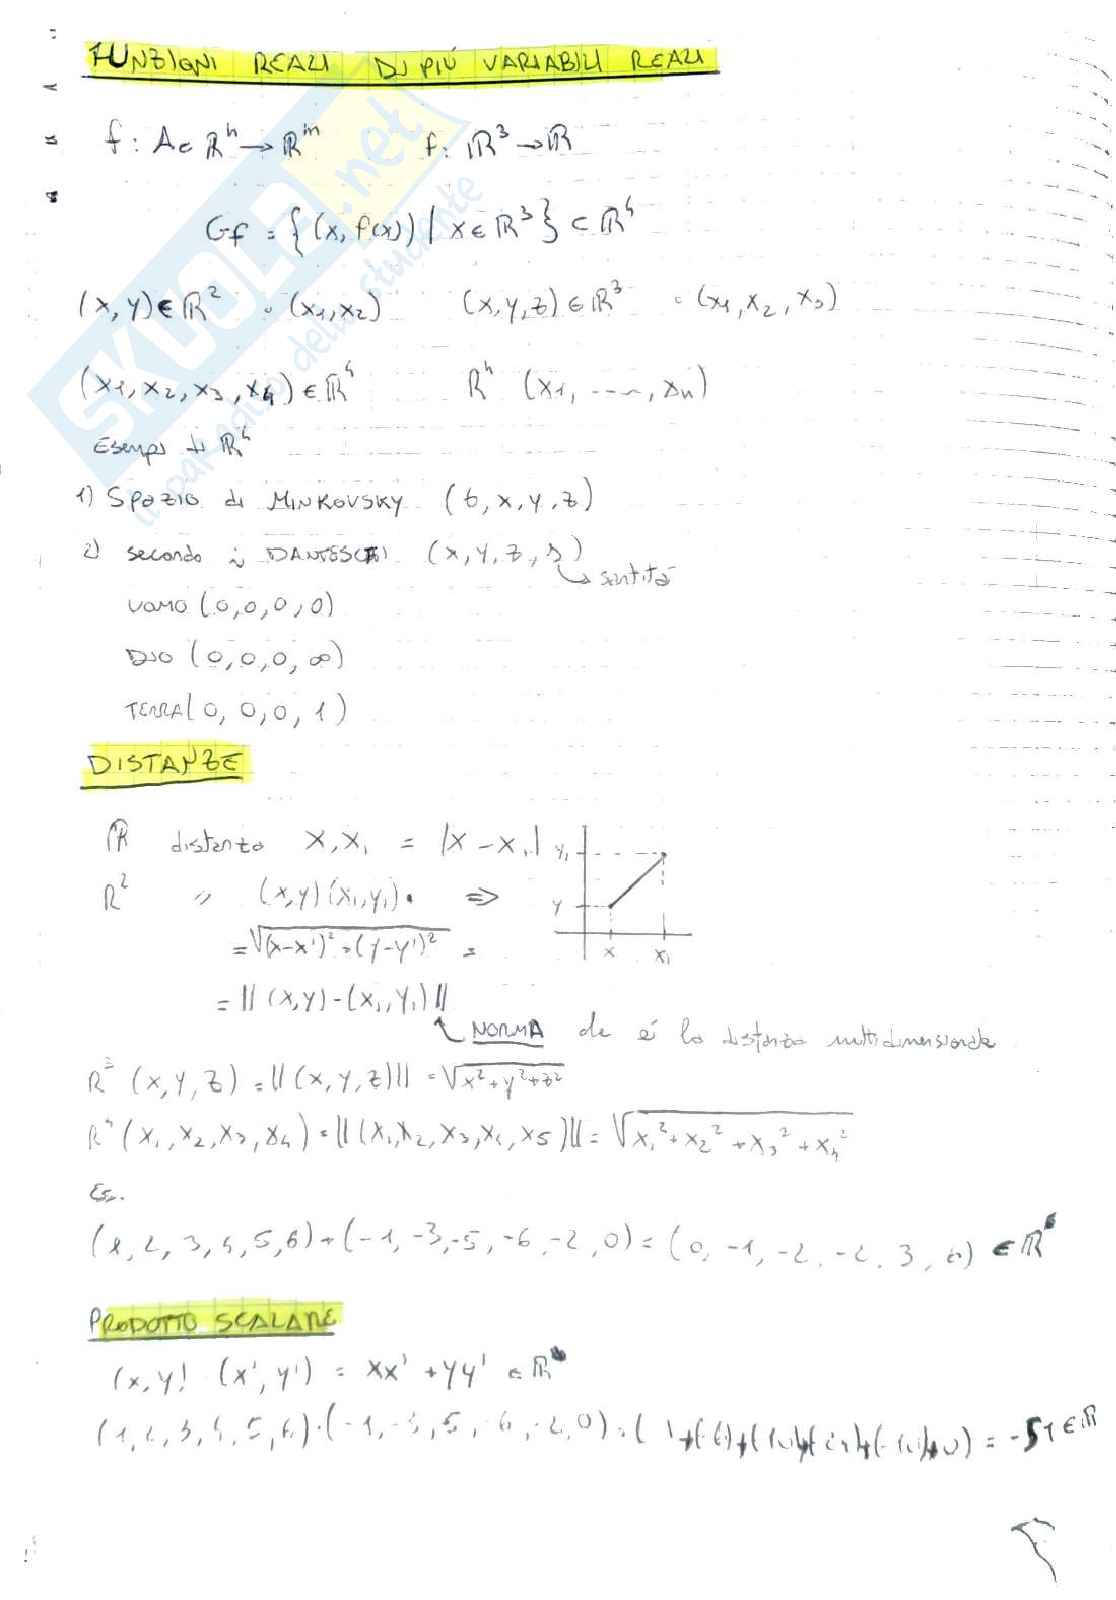 FUNZIONI REALI DI PIÚ VARIABILI REALI
f: A⊂ ℝⁿ → ℝᵐ f: ℝ³ → ℝ
Gf = {(x, f(x)) / x ∈ ℝ³} ⊂ ℝ⁴
(x, y) ∈ ℝ² ∘ (x₁, x₂) (x, y, z) ∈ ℝ³ ∘ (x₁, x₂, x₃)
(x₁, x₂, x₃, x₄) ∈ ℝ⁴ ℝⁿ (x₁, ----, xₙ)
Esempi di ℝ⁴
1) Spazio di MINKOVSKY (t, x, y, z)
2) secondo i DANTESCHI (x, y, z, s)
↳ santità
UOMO (0, 0, 0, 0)
DIO (0, 0, 0, ∞)
TERRA (0, 0, 0, 1)
DISTANZE
ℝ distanza x, x₁ = |x - x₁|
ℝ² " (x, y) (x₁, y₁) ⇒
= √(x-x')² + (y-y')² =
= || (x, y) - (x₁, y₁) ||
y₁
y
x x₁
NORMA che é la distanza multidimensionale
ℝ³ (x, y, z) = || (x, y, z) || = √x² + y² + z²
ℝ⁴ (x₁, x₂, x₃, x₄) = || (x₁, x₂, x₃, x₄, x₅) || = √x₁² + x₂² + x₃² + x₄²
Es.
(1, 2, 3, 4, 5, 6) + (-1, -3, -5, -6, -2, 0) = (0, -1, -2, -2, 3, 6) ∈ ℝ⁶
PRODOTTO SCALARE
(x, y) (x', y') = xx' + yy' ∈ ℝ
(1, 2, 3, 4, 5, 6) · (-1, -3, 5, -6, -2, 0) = = -51 ∈ ℝ
SKUOLA.net
il paradiso dello studente